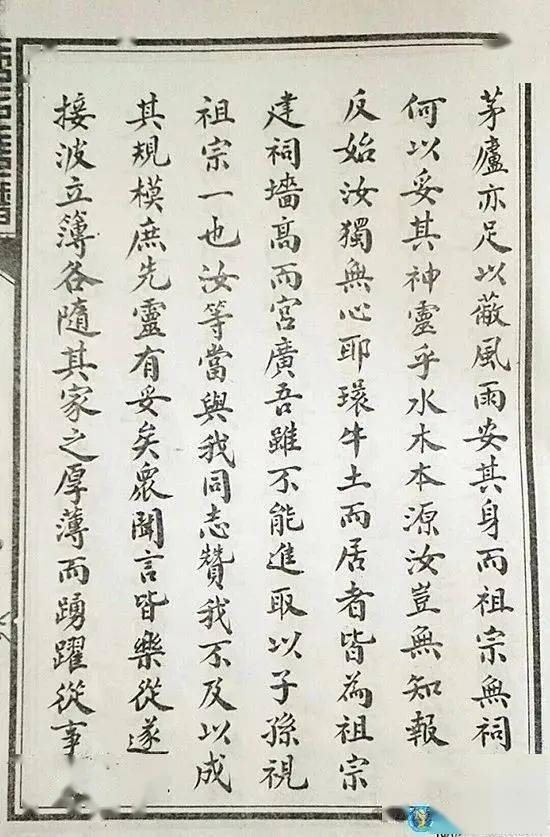 茅廬亦足以蔽風雨安其身而祖宗無祠
何以妥其神靈乎水木本源汝豈無知報
反始汝獨無心耶環牛土而居者皆為祖宗
建祠墻高而宮廣吾雖不能進取以子孫視
祖宗一也汝等當與我同志贊我不及以成
其規模庶先靈有妥矣衆聞言皆樂從遂
接波立簿各隨其家之厚薄而踴躍從事